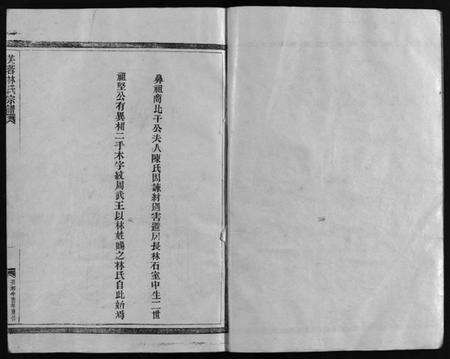 鼻祖商比干公夫人陳氏因諫紂遇害避居長林石室中生二世
祖堅公有異相二手木字紋周武王以林姓賜之林氏自此始焉
林氏宗譜